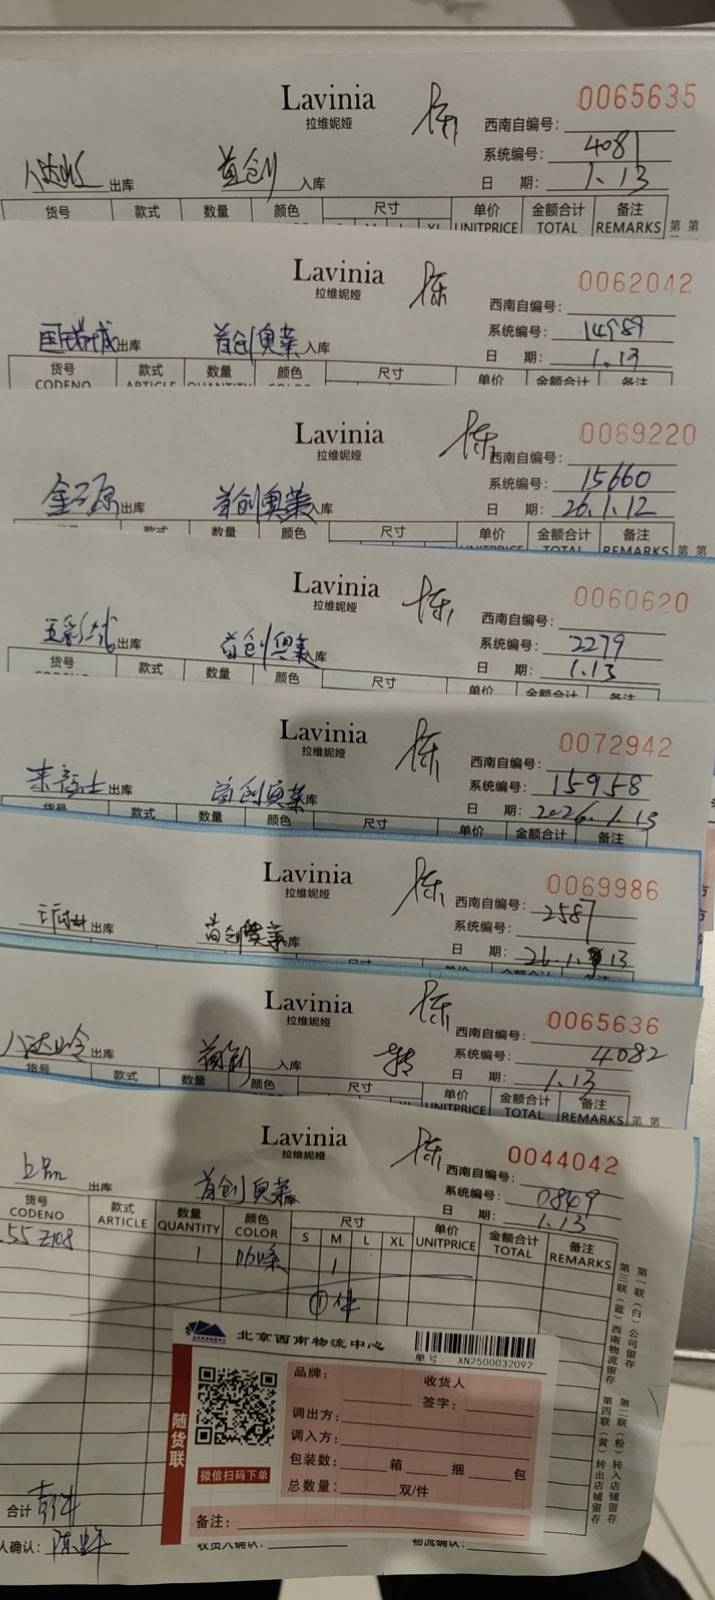 Lavinia 陈 0065635
拉维妮娅 西南自编号:
系统编号: 4081
八达岭 出库 首创 入库 日 期: 1.13
货号 款式 数量 颜色 尺寸 单价 金额合计 备注
UNITPRICE TOTAL REMARKS 第 第
Lavinia 陈 0062042
拉维妮娅 西南自编号:
系统编号: 14989
国瑞城 出库 首创奥莱 入库 日 期: 1.13
货号 款式 数量 颜色 尺寸 单价 金额合计 备注
CODENO ARTICLE QUANTITY
Lavinia 陈 0069220
拉维妮娅 西南自编号:
系统编号: 15660
金源 出库 首创奥莱 入库 日 期: 26.1.12
款式 数量 颜色 尺寸 单价 金额合计 备注
UNITPRICE TOTAL REMARKS 第 第
Lavinia 陈 0060620
拉维妮娅 西南自编号:
系统编号: 2279
五彩城 出库 首创奥莱 库 日 期: 1.13
货号 款式 数量 颜色 尺寸 单价 金额合计 备注
Lavinia 陈 0072942
拉维妮娅 西南自编号:
系统编号: 15958
来福士 出库 首创奥莱 库 日 期: 2026.1.13
货号 款式 数量 颜色 尺寸 单价 金额合计 备注
Lavinia 陈 0069986
拉维妮娅 西南自编号: 2587
系统编号:
出库 首创奥莱 库 日 期: 26.1.13
Lavinia 陈 0065636
拉维妮娅 西南自编号:
系统编号: 4082
八达岭 出库 首创 入库 转 日 期: 1.13
货号 款式 数量 颜色 尺寸 单价 金额合计 备注
UNITPRICE TOTAL REMARKS 第 第
Lavinia 陈 0044042
拉维妮娅 西南自编号:
系统编号: 0849
上品 出库 首创奥莱 库 日 期: 1.13
货号 款式 数量 颜色 尺寸 单价 金额合计 备注
CODENO ARTICLE QUANTITY COLOR S M L XL UNITPRICE TOTAL REMARKS
55 Z108 1 咖啡 1
① 件
第一联(白)公司留存 第二联(粉)转入店铺留存
第三联(蓝)西南物流留存 第四联(黄)转出店铺留存
北京西南物流中心
单号: XN2500032092
随货联
微信扫码下单
品牌: 收货人
签字:
调出方:
调入方:
包装数: 箱 捆 包
总数量: 双/件
备注:
合计 壹件
人确认: 收货人确认: 物流确认: